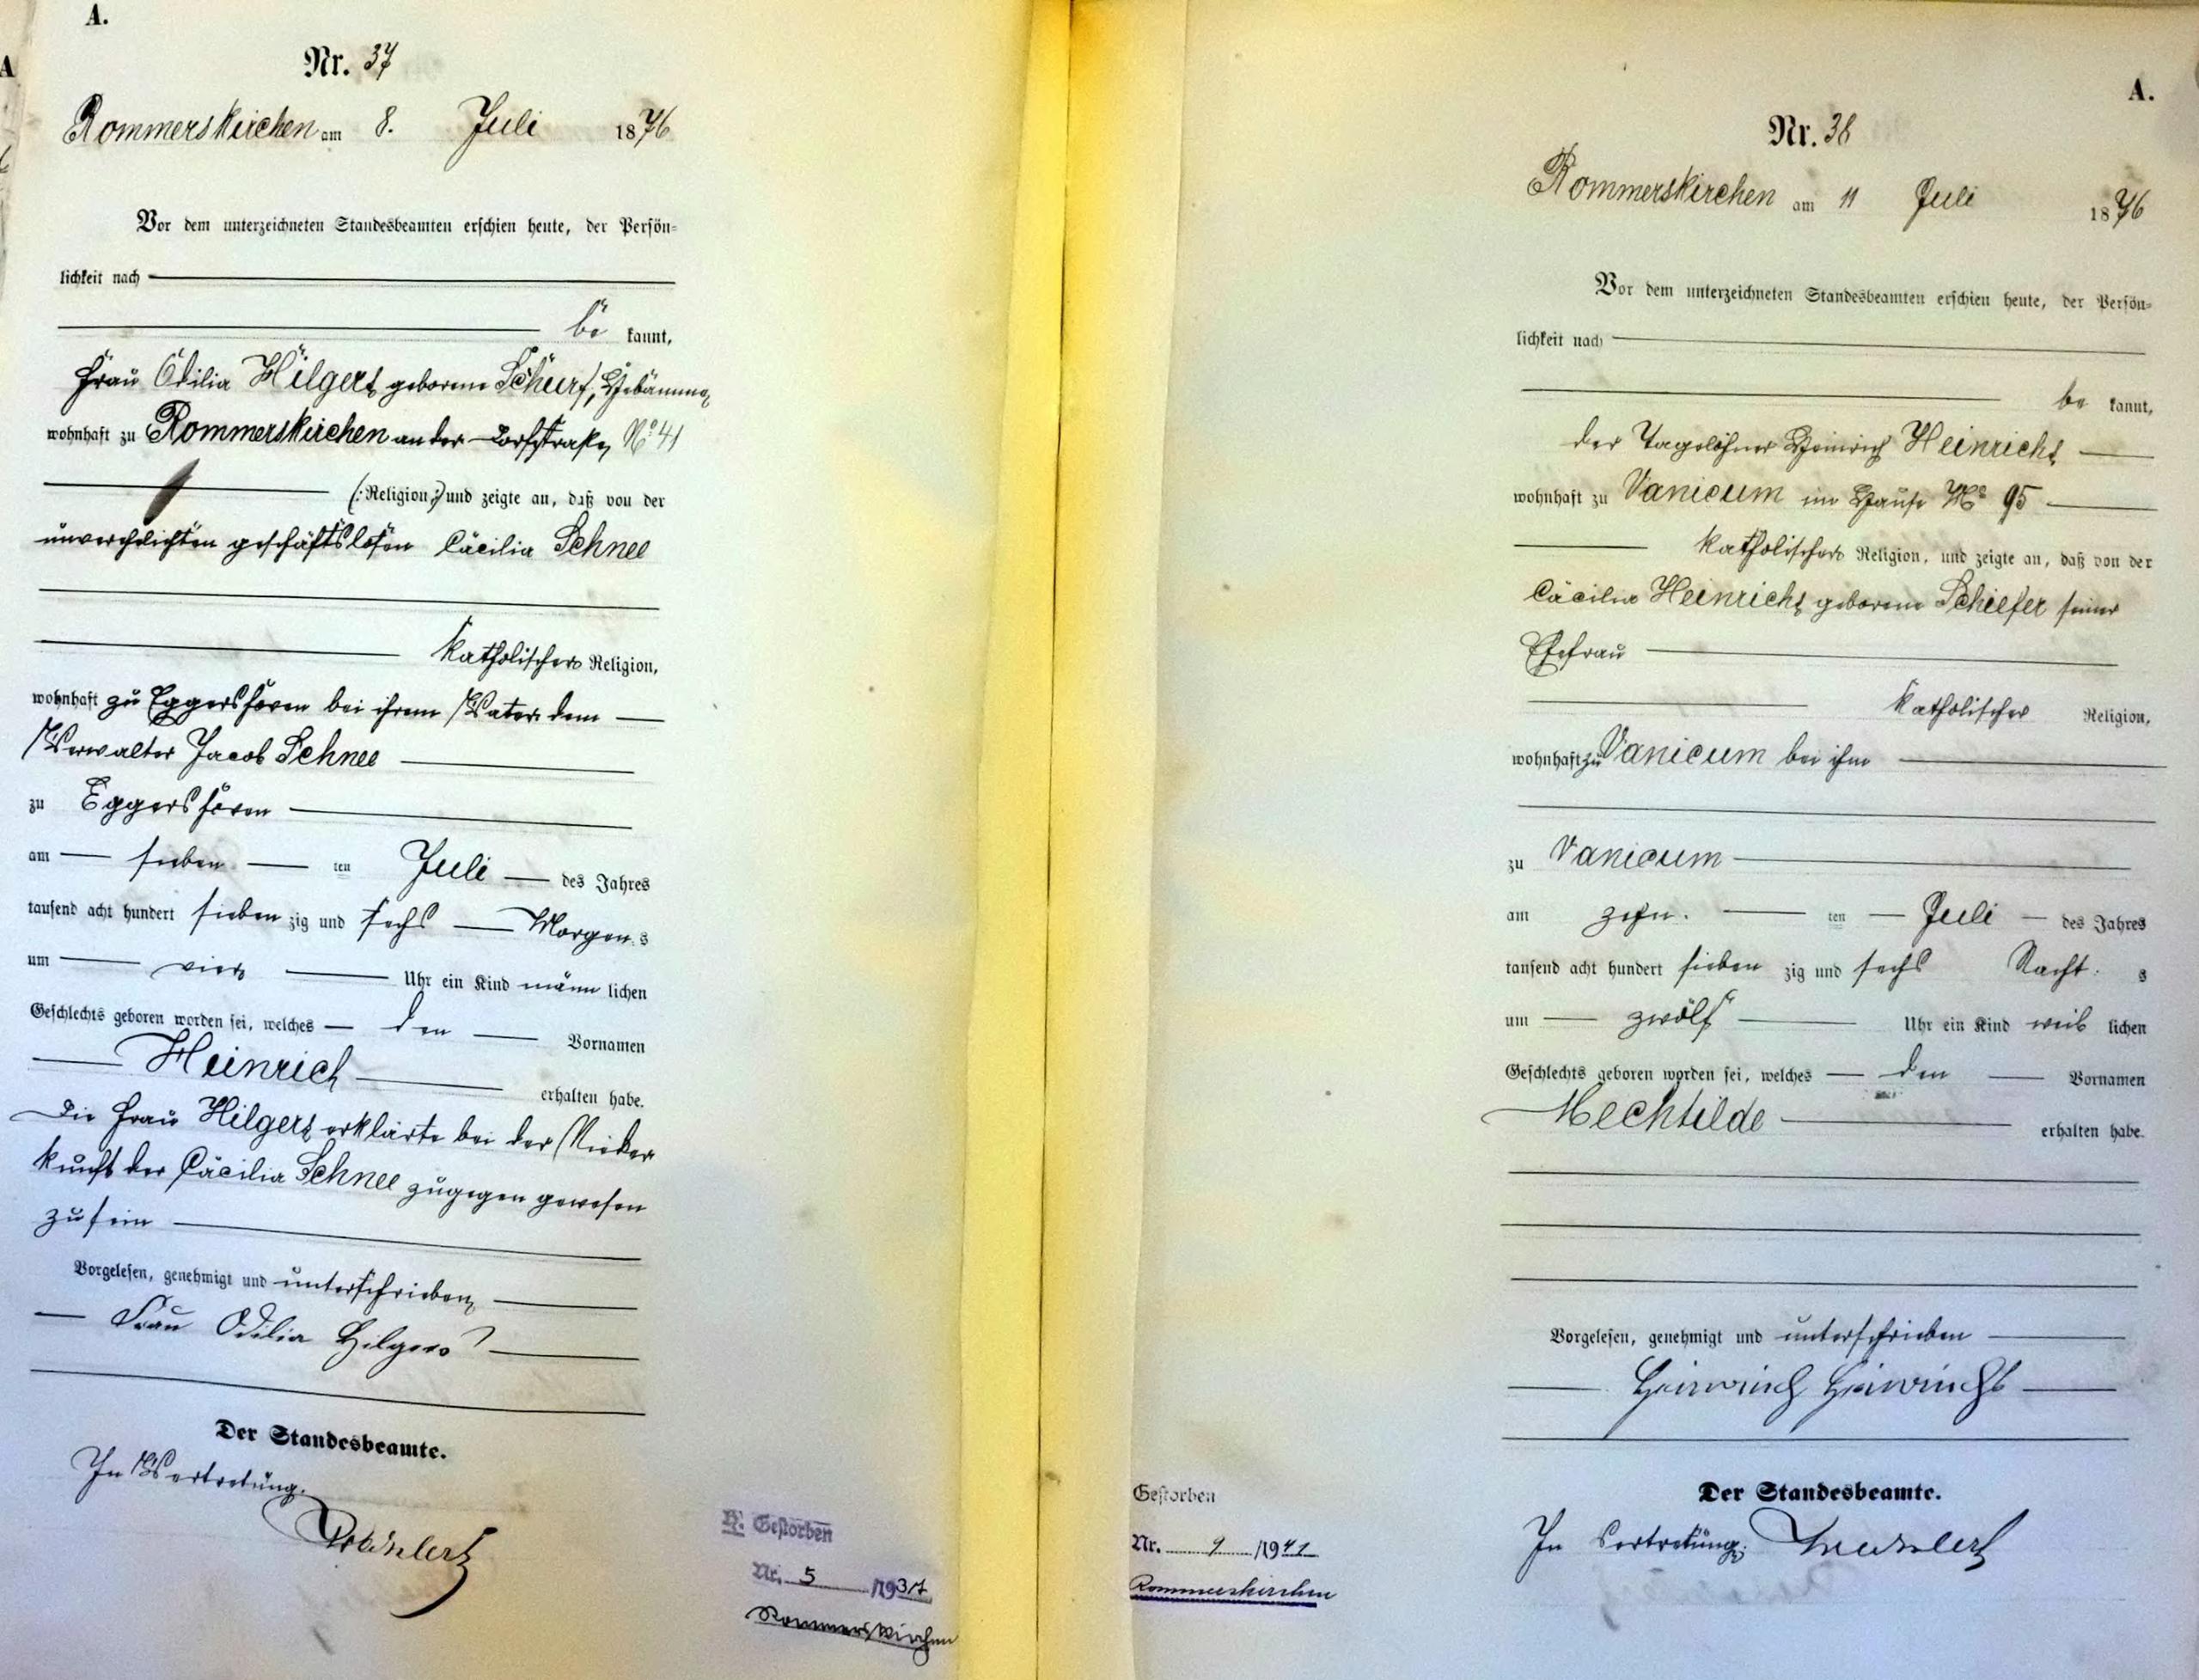 A.
Nr. 37
Rommerskirchen am 8. Juli 1876
Vor dem unterzeichneten Standesbeamten erschien heute, der Persön-
lichkeit nach
be kannt,
Frau Odilia Hilgers geborene Schurf, Hebamme,
wohnhaft zu Rommerskirchen an der Dorfstraße, No 41
(: Religion,:) und zeigte an, daß von der
unverehelichten geschäftslosen Cäcilia Schnee
katholischer Religion,
wohnhaft zu Eggershoven bei ihrem Vater dem
Verwalter Jacob Schnee
zu Eggershoven
am sieben ten Juli des Jahres
tausend acht hundert sieben zig und sechs Morgens
um vier Uhr ein Kind männ lichen
Geschlechts geboren worden sei, welches den Vornamen
Heinrich erhalten habe.
Die Frau Hilgers erklärte bei der Nieder
kunft der Cäcilia Schnee zugegen gewesen
zu sein
Vorgelesen, genehmigt und unterschrieben,
Frau Odilia Hilgers
Der Standesbeamte.
In Vertretung.
H. Gestorben
Nr. 5 /1937
Rommerskirchen
A.
Nr. 38
Rommerskirchen am 11 Juli 1876
Vor dem unterzeichneten Standesbeamten erschien heute, der Persön-
lichkeit nach
be kannt,
der Tagelöhner Heinrich Heinrichs
wohnhaft zu Vanicum im Hause No 95
katholischer Religion, und zeigte an, daß von der
Cäcilia Heinrichs geborene Schiefer seiner
Ehefrau
katholischer Religion,
wohnhaft zu Vanicum bei ihm
zu Vanicum
am zehn. ten Juli des Jahres
tausend acht hundert sieben zig und sechs Nacht. s
um zwölf Uhr ein Kind weib lichen
Geschlechts geboren worden sei, welches den Vornamen
Mechtilde erhalten habe.
Vorgelesen, genehmigt und unterschrieben
Heinrich Heinrichs
Der Standesbeamte.
In Vertretung:
Gestorben
Nr. 9 /1941
Rommerskirchen